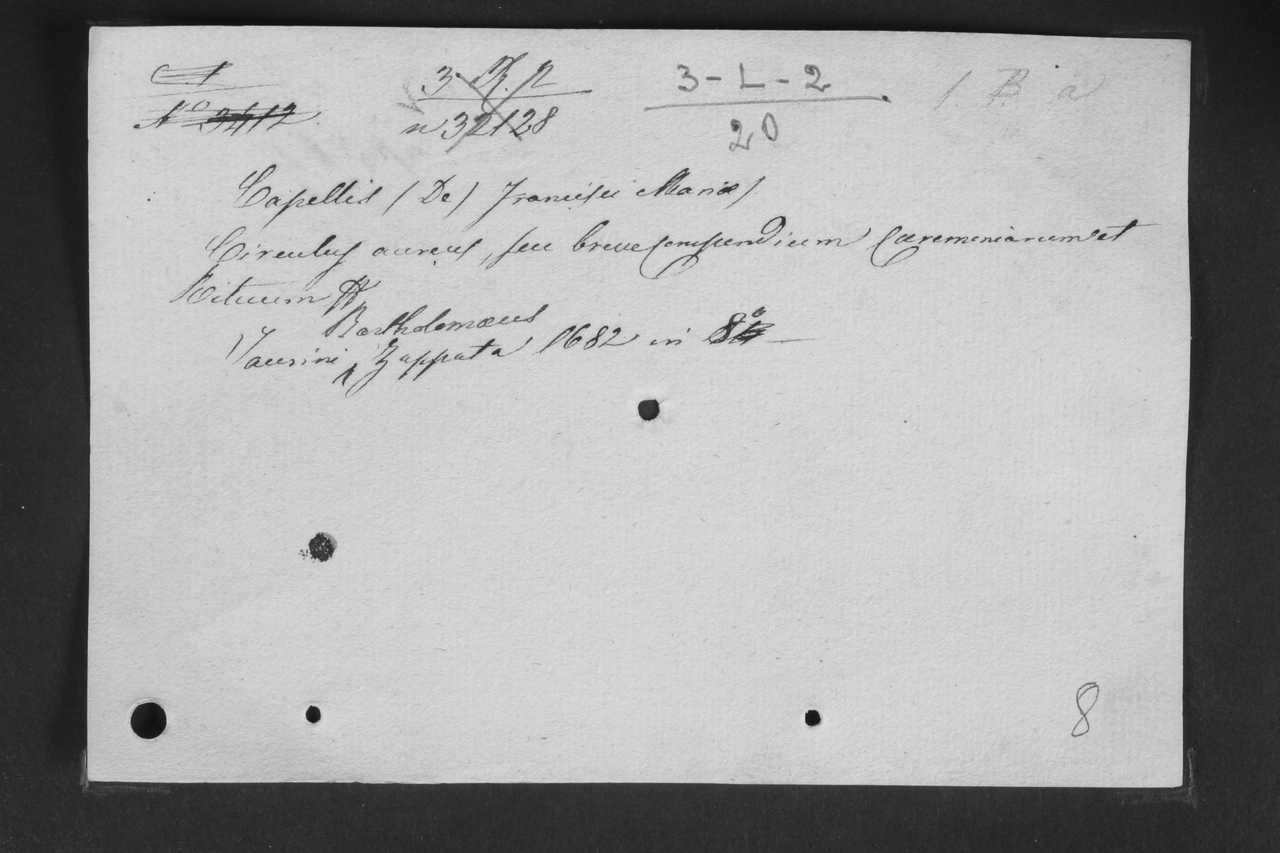 No 3412
3 - Z. 2
n 32128
3 - L - 2
20
1. B a
Capellis (De) Francisci Mariæ)
Circulus aureus, seu breve Compendium Cæremoniarum et
Rituum
Bartholomæus
Taurini, Zappata 1682 in 8o
8